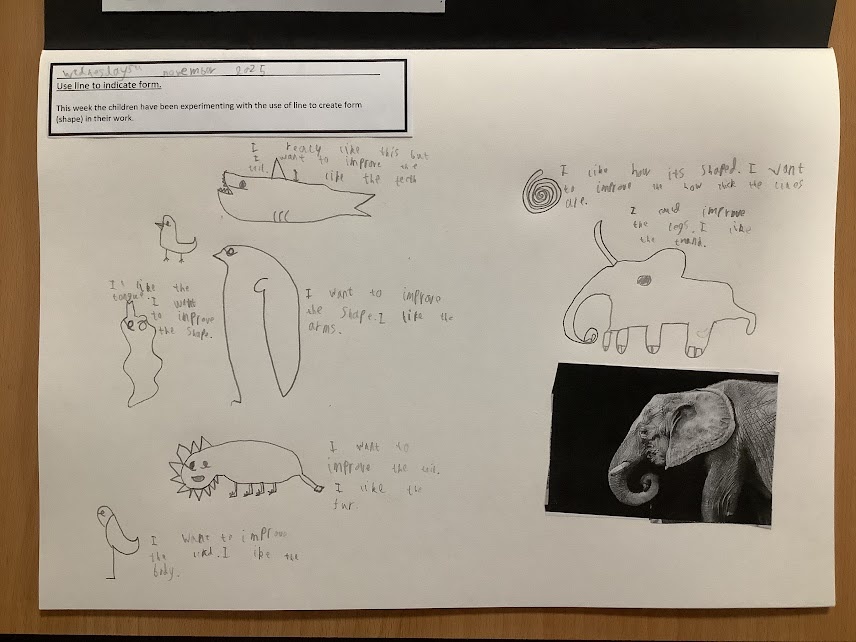 wednesday 5th november 2025
Use line to indicate form.
This week the children have been experimenting with the use of line to create form
(shape) in their work.
I realy like this but
I want to improve the
I like the teeth
I like how its shaped. I want
to improve in how thick the lines
are.
I could improve
the legs. I like
the trunk.
I like the
tongue. I want
to improve
the shape.
I want to improve
the shape. I like the
arms.
I want to
improve the
I like the
fur.
I want to improve
the I like the
body.